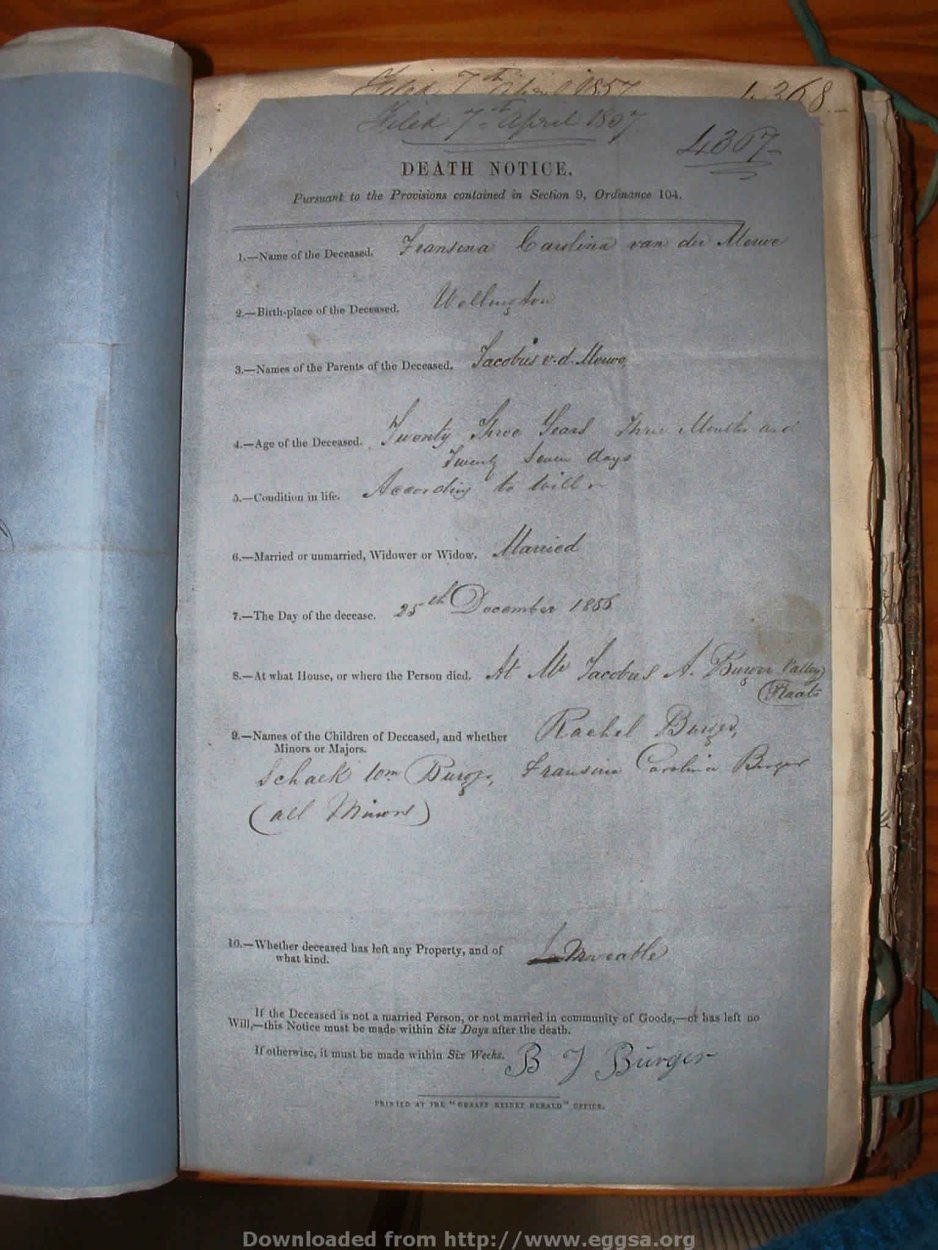 Filed 7th April 1857
4368
Filed 7th April 1857
4367
DEATH NOTICE.
Pursuant to the Provisions contained in Section 9, Ordinance 104.
1.—Name of the Deceased. Fransina Carolina van der Merwe
2.—Birth-place of the Deceased. Wellington
3.—Names of the Parents of the Deceased. Jacobus v.d. Merwe
4.—Age of the Deceased. Twenty Three Years Three Months and
Twenty Seven days
5.—Condition in life. According to will
6.—Married or unmarried, Widower or Widow. Married
7.—The Day of the decease. 25th December 1856
8.—At what House, or where the Person died. At Mr Jacobus A. Burger Valley
Plaats
9.—Names of the Children of Deceased, and whether Rachel Burger,
Minors or Majors.
Schalk Wm Burger, Fransina Carolina Burger
(all Minors)
10.—Whether deceased has left any Property, and of Moveable
what kind.
If the Deceased is not a married Person, or not married in community of Goods,—or has left no
Will,—this Notice must be made within Six Days after the death.
If otherwise, it must be made within Six Weeks. B J Burger
PRINTED AT THE "GRAAFF REINET HERALD" OFFICE.
Downloaded from http://www.eggsa.org